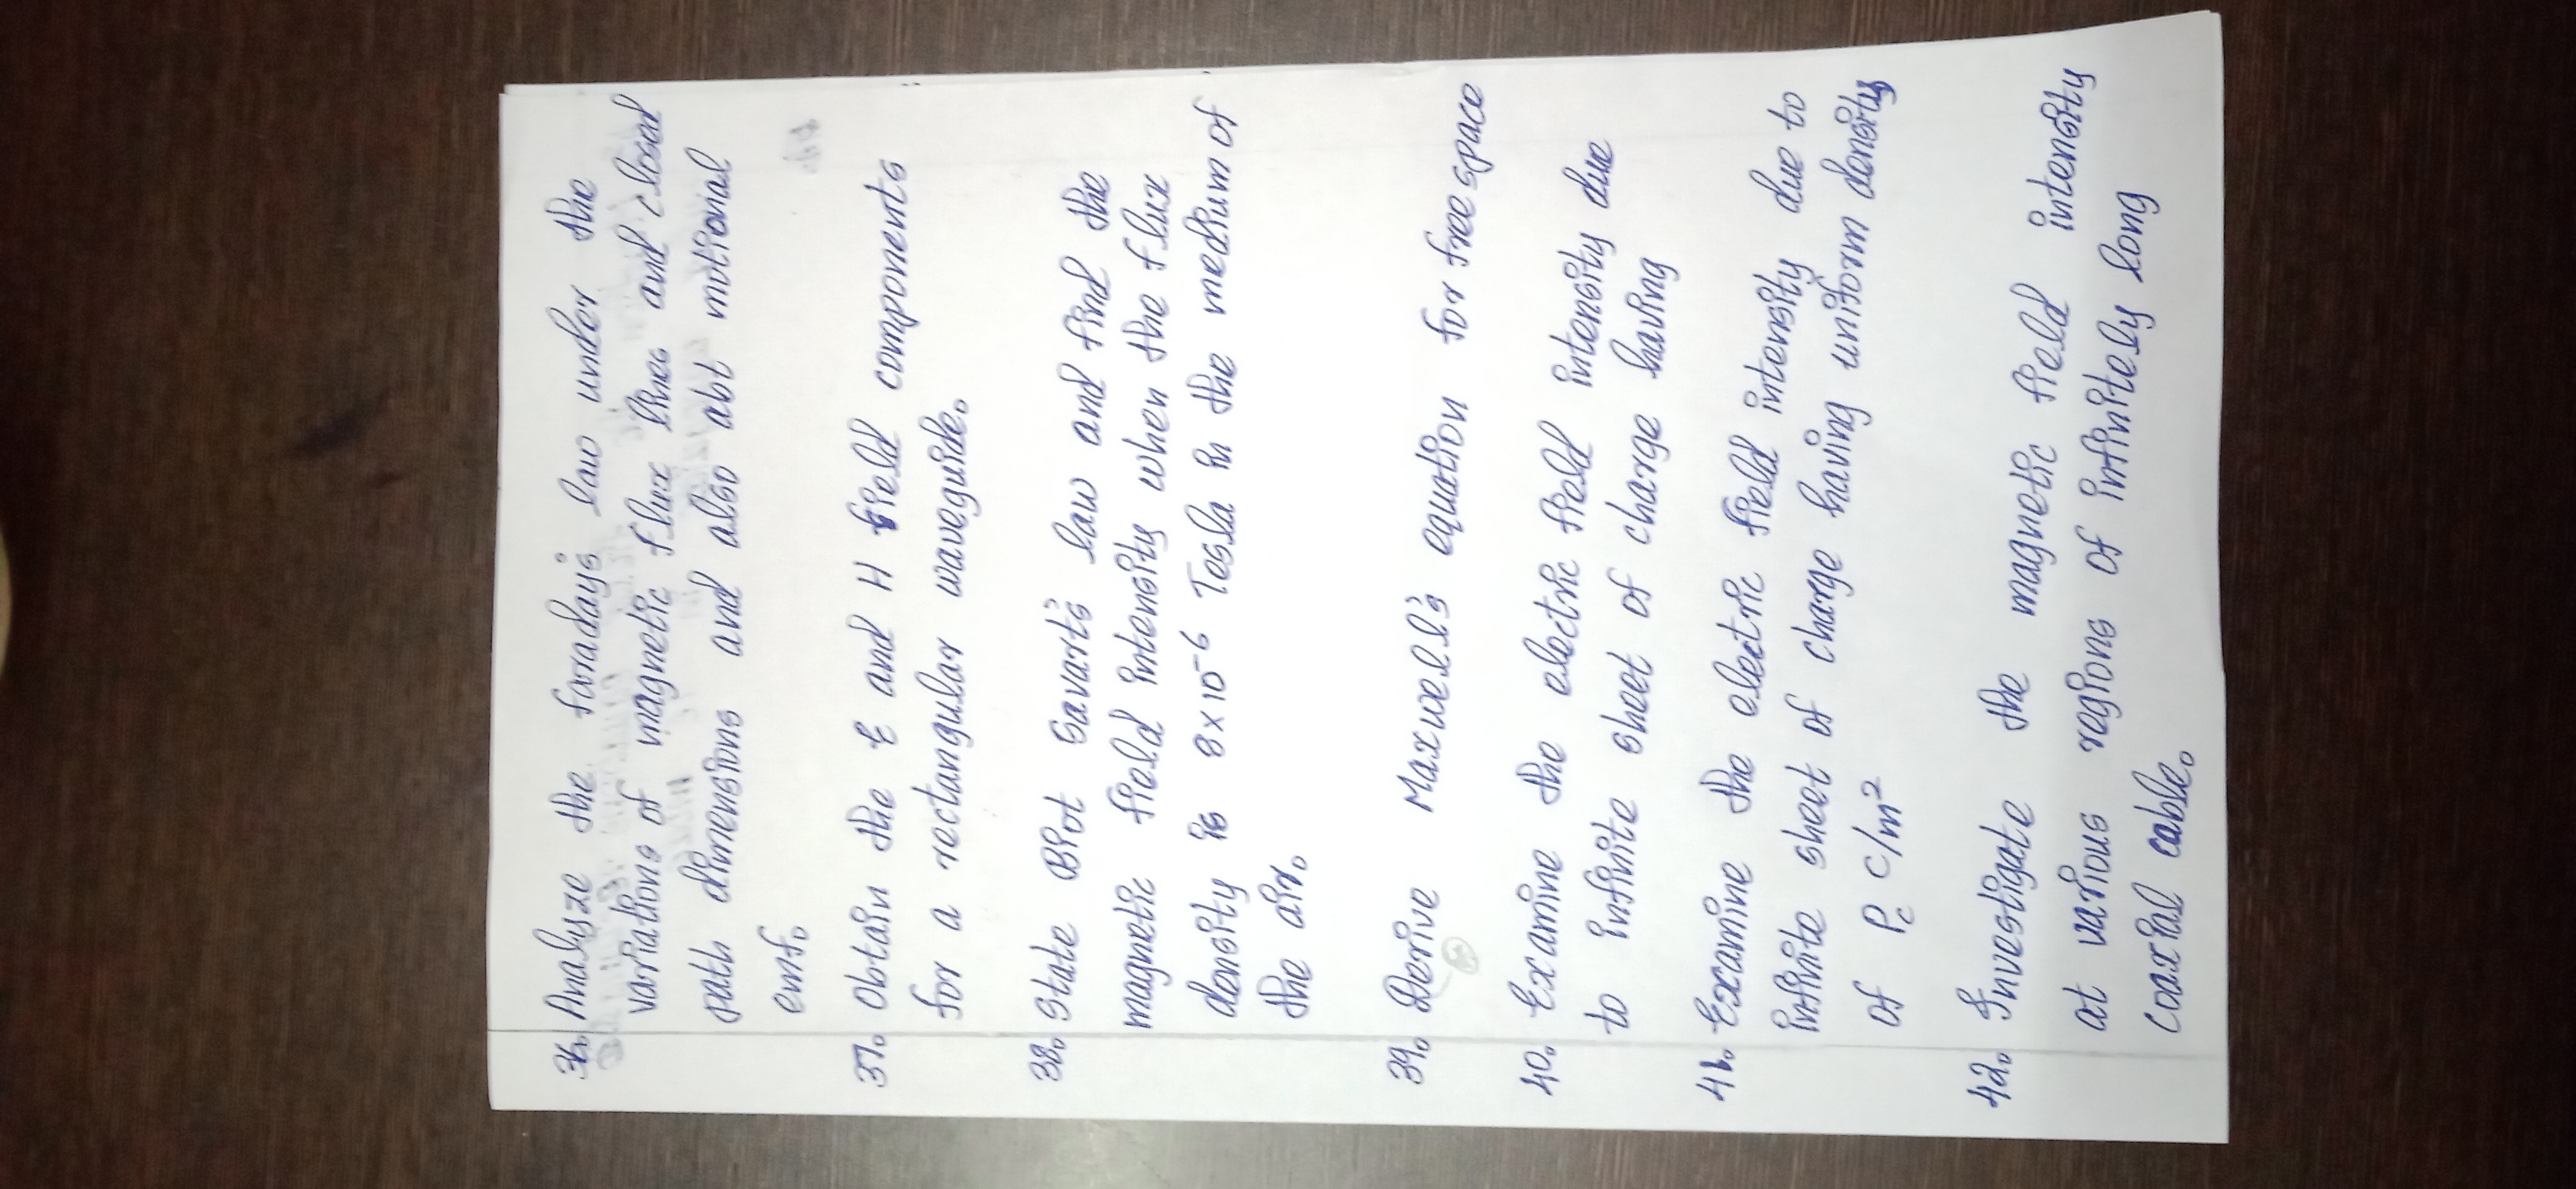 36. Analyze the faradays law under the
variations of magnetic flux lines and closed
path dimensions and also abt motional
emf.
37. Obtain the E and H field components
for a rectangular waveguide.
38. State Biot Savart's law and find the
magnetic field intensity when the flux
density is 8x10⁻⁶ Tesla in the medium of
the air.
39. Derive Maxwell's equation for free space
40. Examine the electric field intensity due
to infinite sheet of charge having
41. Examine the electric field intensity due to
infinite sheet of charge having uniform density
of Pc C/m²
42. Investigate the magnetic field intensity
at various regions of infinitely long
coaxial cable.